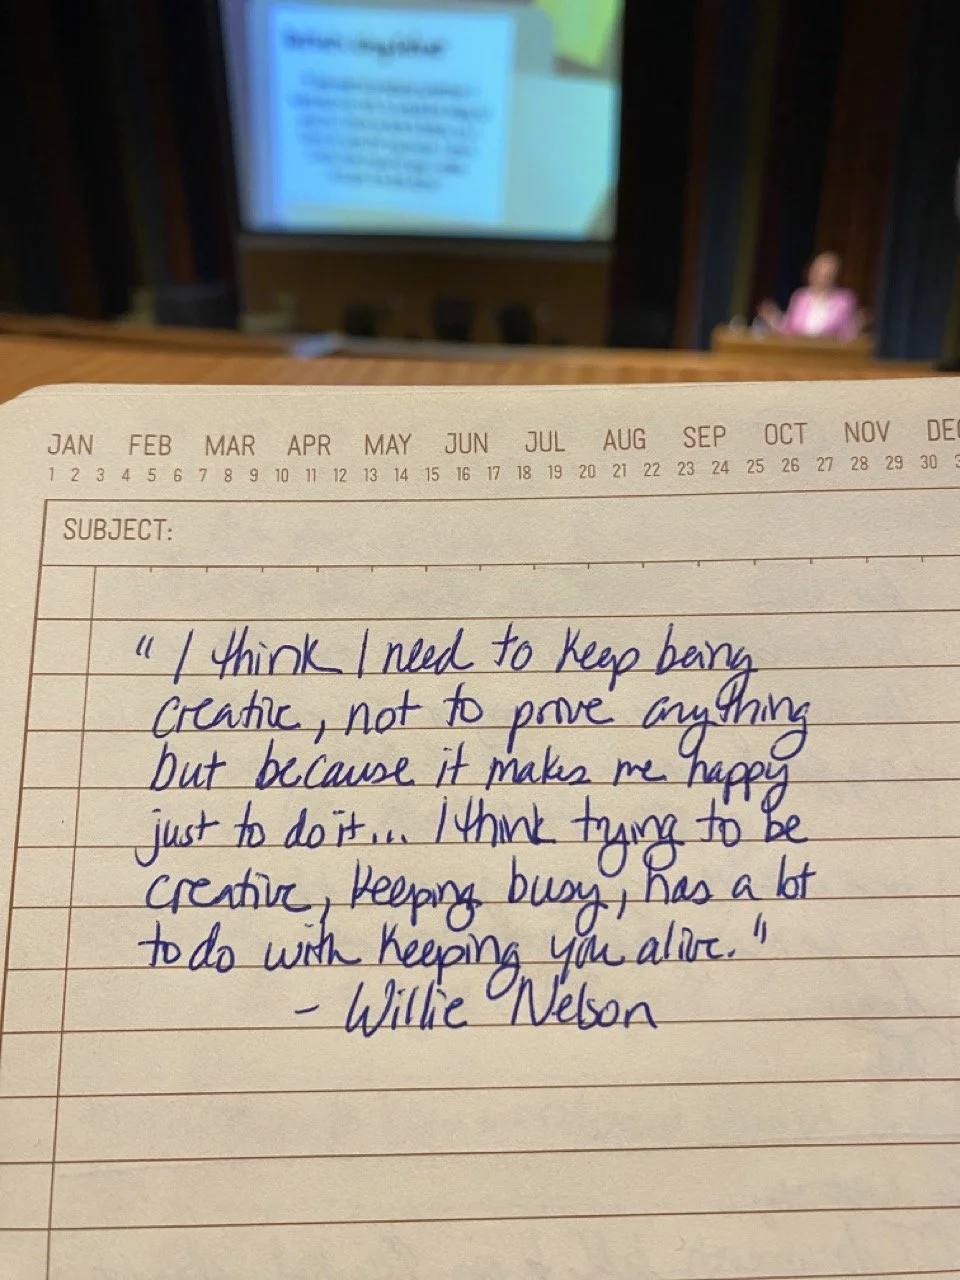 JAN FEB MAR APR MAY JUN JUL AUG SEP OCT NOV DEC
1 2 3 4 5 6 7 8 9 10 11 12 13 14 15 16 17 18 19 20 21 22 23 24 25 26 27 28 29 30
SUBJECT:
"I think I need to keep being
creative, not to prove anything
but because it makes me happy
just to do it... I think trying to be
creative, keeping busy, has a lot
to do with keeping you alive."
- Willie Nelson